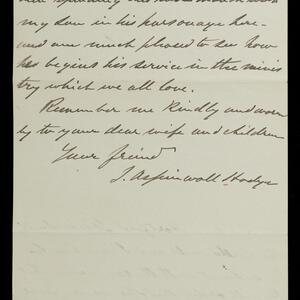 my son in his parsonage here -
and am much pleased to see how
he begins his service in the minis
try which we all love.
Remember me kindly and warm
ly to your dear wife and children
Your friend
J. Aspinwall Hodge